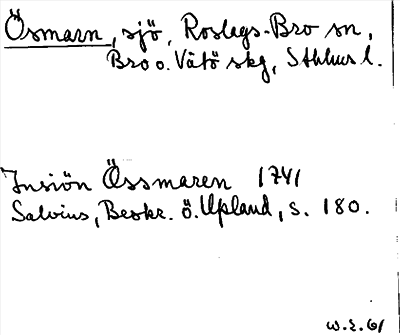 Ösmarn, sjö, Roslags-Bro sn,
Bro o. Vätö skg, Sthlms l.
Insiön Össmaren 1741
Salvius, Beskr. ö. Upland, s. 180.
W.E. 61